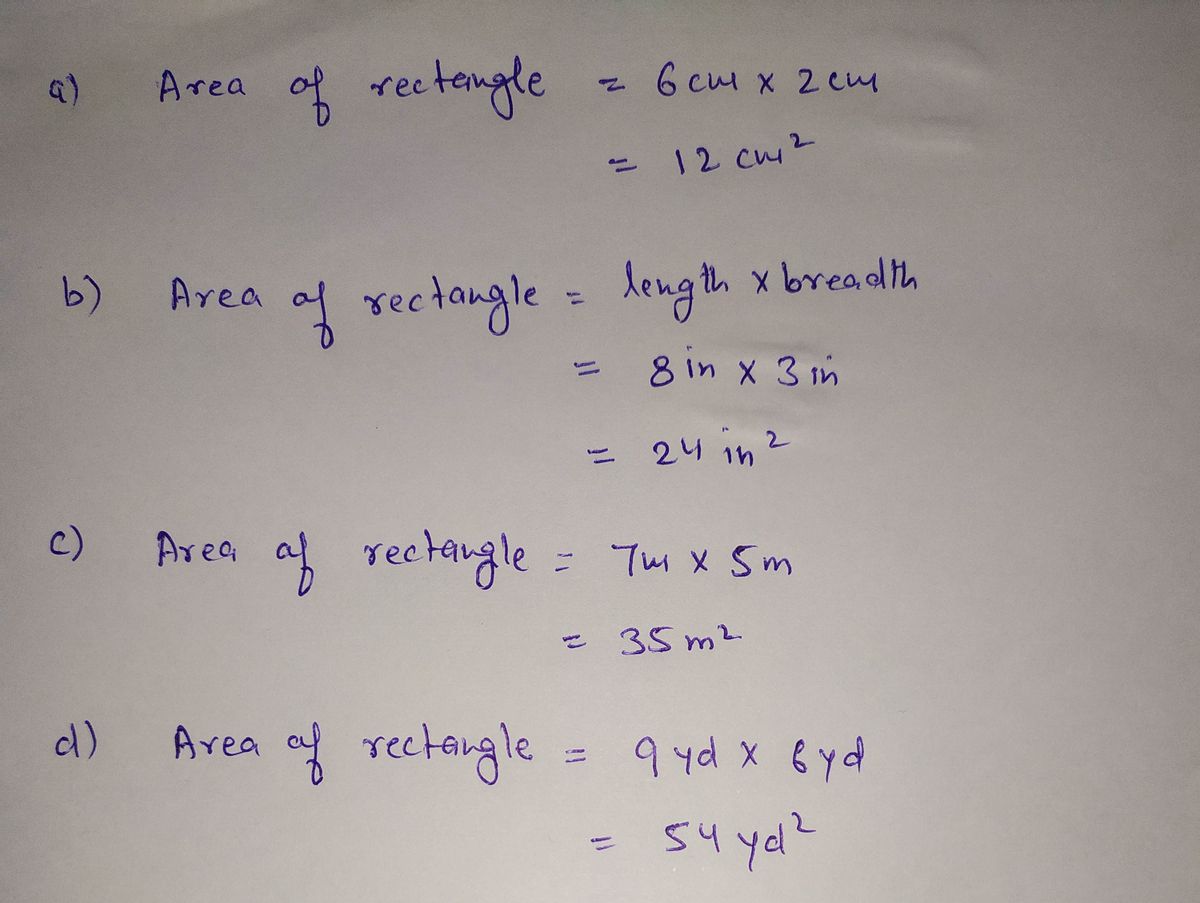 a) Area of rectangle = 6 cm x 2 cm
= 12 cm²
b) Area of rectangle = length x breadth
= 8 in x 3 in
= 24 in²
c) Area of rectangle = 7m x 5m
= 35 m²
d) Area of rectangle = 9 yd x 6 yd
= 54 yd²